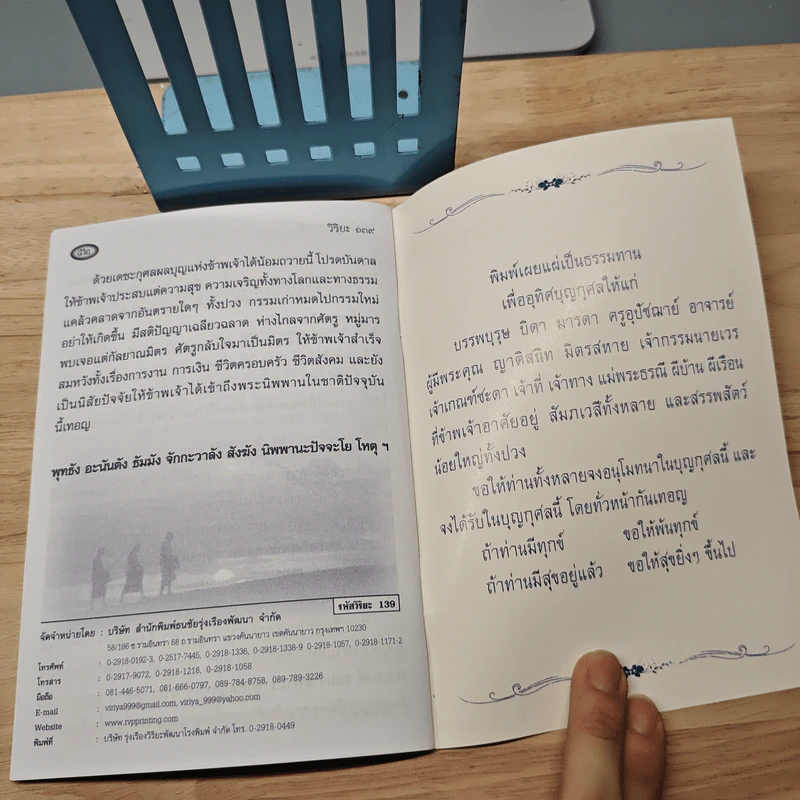 ๕๒
วิริยะ ๑๓๙
ด้วยเดชะกุศลผลบุญแห่งข้าพเจ้าได้น้อมถวายนี้ โปรดบันดาล
ให้ข้าพเจ้าประสบแต่ความสุข ความเจริญทั้งทางโลกและทางธรรม
แคล้วคลาดจากอันตรายใดๆ ทั้งปวง กรรมเก่าหมดไปกรรมใหม่
อย่าให้เกิดขึ้น มีสติปัญญาเฉลียวฉลาด ห่างไกลจากศัตรู หมู่มาร
พบเจอแต่กัลยาณมิตร ศัตรูกลับใจมาเป็นมิตร ให้ข้าพเจ้าสำเร็จ
สมหวังทั้งเรื่องการงาน การเงิน ชีวิตครอบครัว ชีวิตสังคม และยัง
เป็นนิสัยปัจจัยให้ข้าพเจ้าได้เข้าถึงพระนิพพานในชาติปัจจุบัน
นี้เทอญ
พุทธัง อะนันตัง ธัมมัง จักกะวาลัง สังฆัง นิพพานะปัจจะโย โหตุ ฯ
รหัสวิริยะ 139
จัดจำหน่ายโดย : บริษัท สำนักพิมพ์ธนชัยรุ่งเรืองพัฒนา จำกัด
58/186 ซ.รามอินทรา 68 ถ.รามอินทรา แขวงคันนายาว เขตคันนายาว กรุงเทพฯ 10230
โทรศัพท์ : 0-2918-0192-3, 0-2517-7445, 0-2918-1336, 0-2918-1338-9 0-2918-1057, 0-2918-1171-2
โทรสาร : 0-2917-9072, 0-2918-1218, 0-2918-1058
มือถือ : 081-446-5071, 081-666-0797, 089-784-8758, 089-789-3226
E-mail : viriya999@gmail.com, viriya_999@yahoo.com
Website : www.rvpprinting.com
พิมพ์ที่ : บริษัท รุ่งเรืองวิริยะพัฒนาโรงพิมพ์ จำกัด โทร. 0-2918-0449
พิมพ์เผยแผ่เป็นธรรมทาน
เพื่ออุทิศบุญกุศลให้แก่
บรรพบุรุษ บิดา มารดา ครูอุปัชฌาย์ อาจารย์
ผู้มีพระคุณ ญาติสนิท มิตรสหาย เจ้ากรรมนายเวร
เจ้าเกณฑ์ชะตา เจ้าที่ เจ้าทาง แม่พระธรณี ผีบ้าน ผีเรือน
ที่ข้าพเจ้าอาศัยอยู่ สัมภเวสีทั้งหลาย และสรรพสัตว์
น้อยใหญ่ทั้งปวง
ขอให้ท่านทั้งหลายจงอนุโมทนาในบุญกุศลนี้ และ
จงได้รับในบุญกุศลนี้ โดยทั่วหน้ากันเทอญ
ถ้าท่านมีทุกข์ ขอให้พ้นทุกข์
ถ้าท่านมีสุขอยู่แล้ว ขอให้สุขยิ่งๆ ขึ้นไป